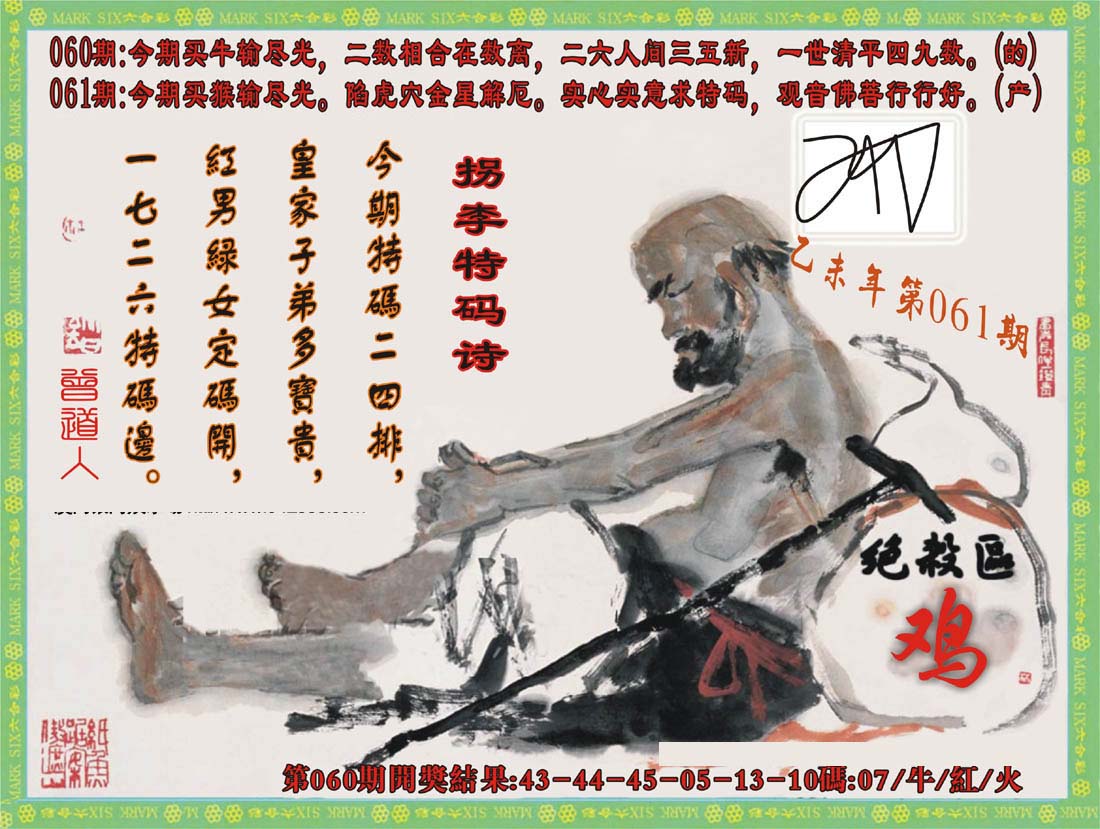 MARK SIX六合彩
060期:今期买牛输尽光，二数相合在数离，二六人间三五新，一世清平四九数。(的)
061期:今期买猴输尽光。陷虎穴金星解厄。实心实意求特码，观音佛菩行行好。(产)
拐李特码诗
今期特碼二四排，
皇家子弟多寶貴，
紅男綠女定碼開，
一七二六特碼邊。
曾道人
乙未年第061期
绝殺區
鸡
第060期開獎結果:43-44-45-05-13-10碼:07/牛/紅/火